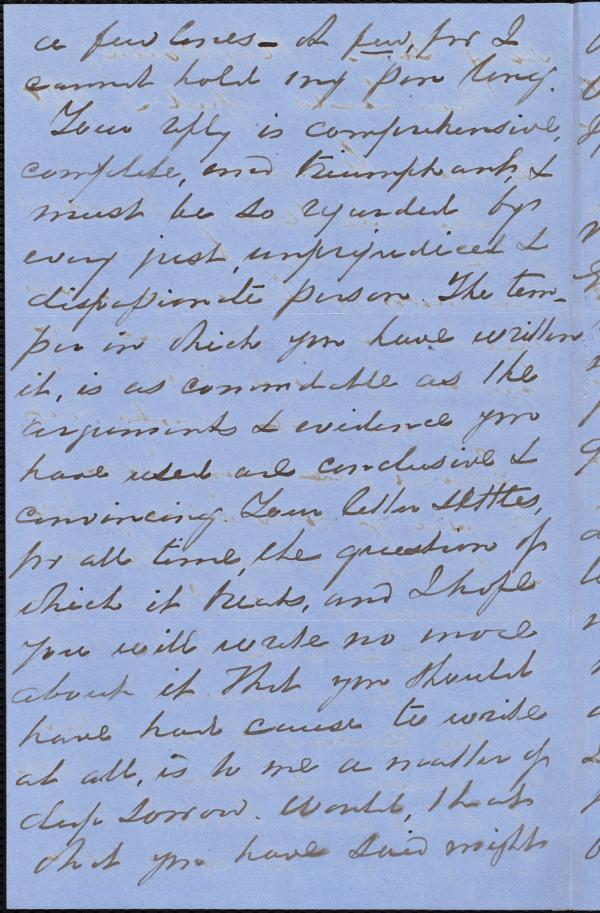 a few lines - A few, for I
cannot hold my pen long.
Your reply is comprehensive,
complete, and triumphant, &
must be so regarded by
every just, unprejudiced &
dispassionate person. The tem-
per in which you have written
it, is as commendable as the
arguments & evidence you
have used are conclusive &
convincing. Your letter settles,
for all time, the question of
which it treats, and I hope
you will write no more
about it. That you should
have had cause to write
at all, is to me a matter of
deep sorrow. Would, that
what you have said might